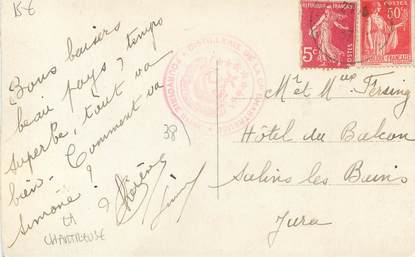 15€
Bons baisers
beau pays, temps
superbe, tout va
bien. Comment va
Simone ?
38
LA
CHARTREUSE
DISTILLERIE DE LA
VOIRON
RÉPUBLIQUE FRANÇAISE
5c
POSTES
50c
POSTES
FRANÇAISE
Mr et Mme Fersing
Hôtel du Balcon
Salins les Bains
Jura